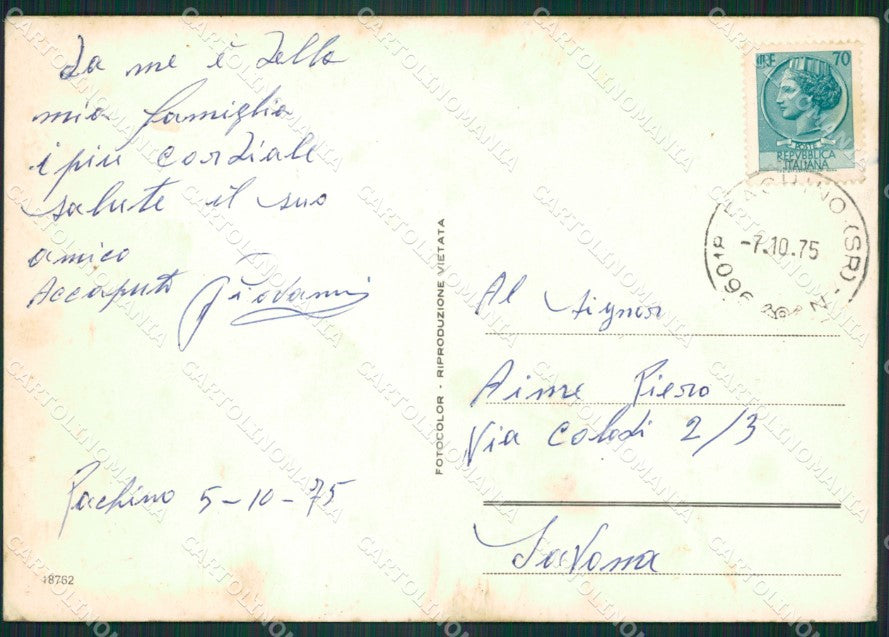 Da me è della
mia famiglia
i più cordiale
salute il suo
amico
Accaputo Giovanni
Pachino 5-10-75
18762
FOTOCOLOR - RIPRODUZIONE VIETATA
LIRE 70
POSTE
REPVBBLICA
ITALIANA
PACHINO (SR)
-7.10.75
96018
Al Signor
Aime Piero
Via Colodi 2/3
Savona
CARTOLINOMANIA